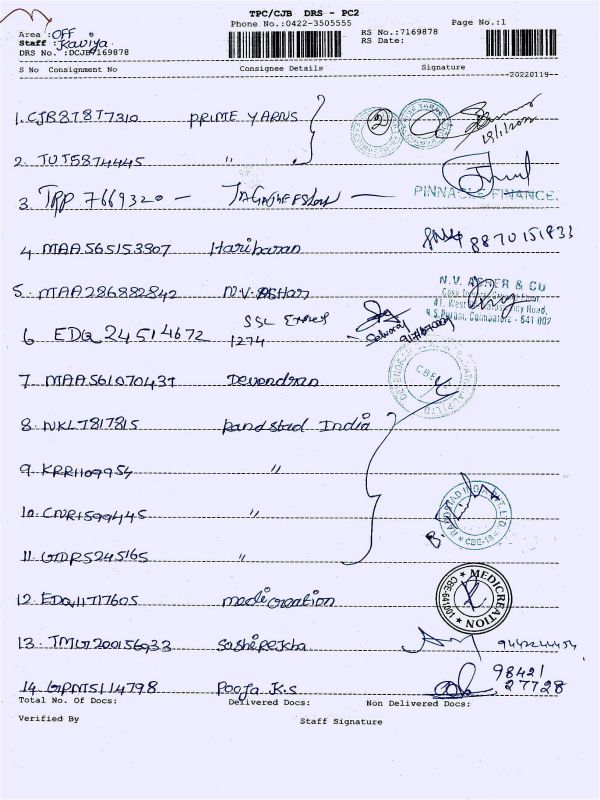 TPC/CJB DRS - PC2
Phone No.:0422-3505555
Page No.:1
Area :OFF
RS No.:7169878
Staff :Kaviya
RS Date:
DRS No. :DCJB7169878
S No Consignment No Consignee Details Signature
20220119
1. CJB878T7310 PRIME YARNS 2
2. TUT5874445 "
3 TRP 7669320 -
PINNACLE FINANCE.
4 MAA565153907 Hariharan 8870151833
5. MAA286882842 N.V. ASHER
N.V. ASHER & CO
6 EDQ 24514672 SSL
1274 Selvaraj
7. MAA561070437 Devendran
8. NKLT817815 Randstad India
9. KRR1109954 "
10. CNR1599445 "
11. GDR5245165 "
12. EDQ11717605 medicreation
MEDICREATION
13. TMG200156933 Sashirekha
14. GPM5114798 Pooja K.S 98421
27728
Total No. Of Docs: Delivered Docs: Non Delivered Docs:
Verified By Staff Signature